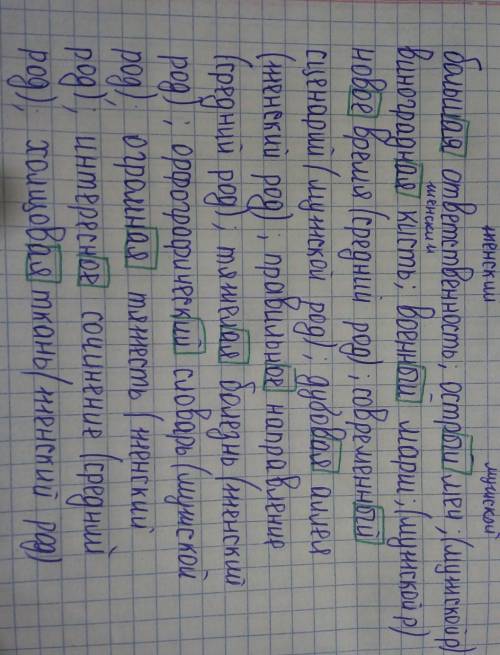 женский мужской
большая ответственность; острый меч; (мужской р)
женский
виноградная кисть; военный марш; (мужской р)
новое время (средний род); современный
сценарий (мужской род); дубовая аллея
(женский род); правильное направление
(средний род); тяжелая болезнь (женский
род); орфографический словарь (мужской
род); огромная тяжесть (женский
род); интересное сочинение (средний
род); холщовая ткань (женский род)